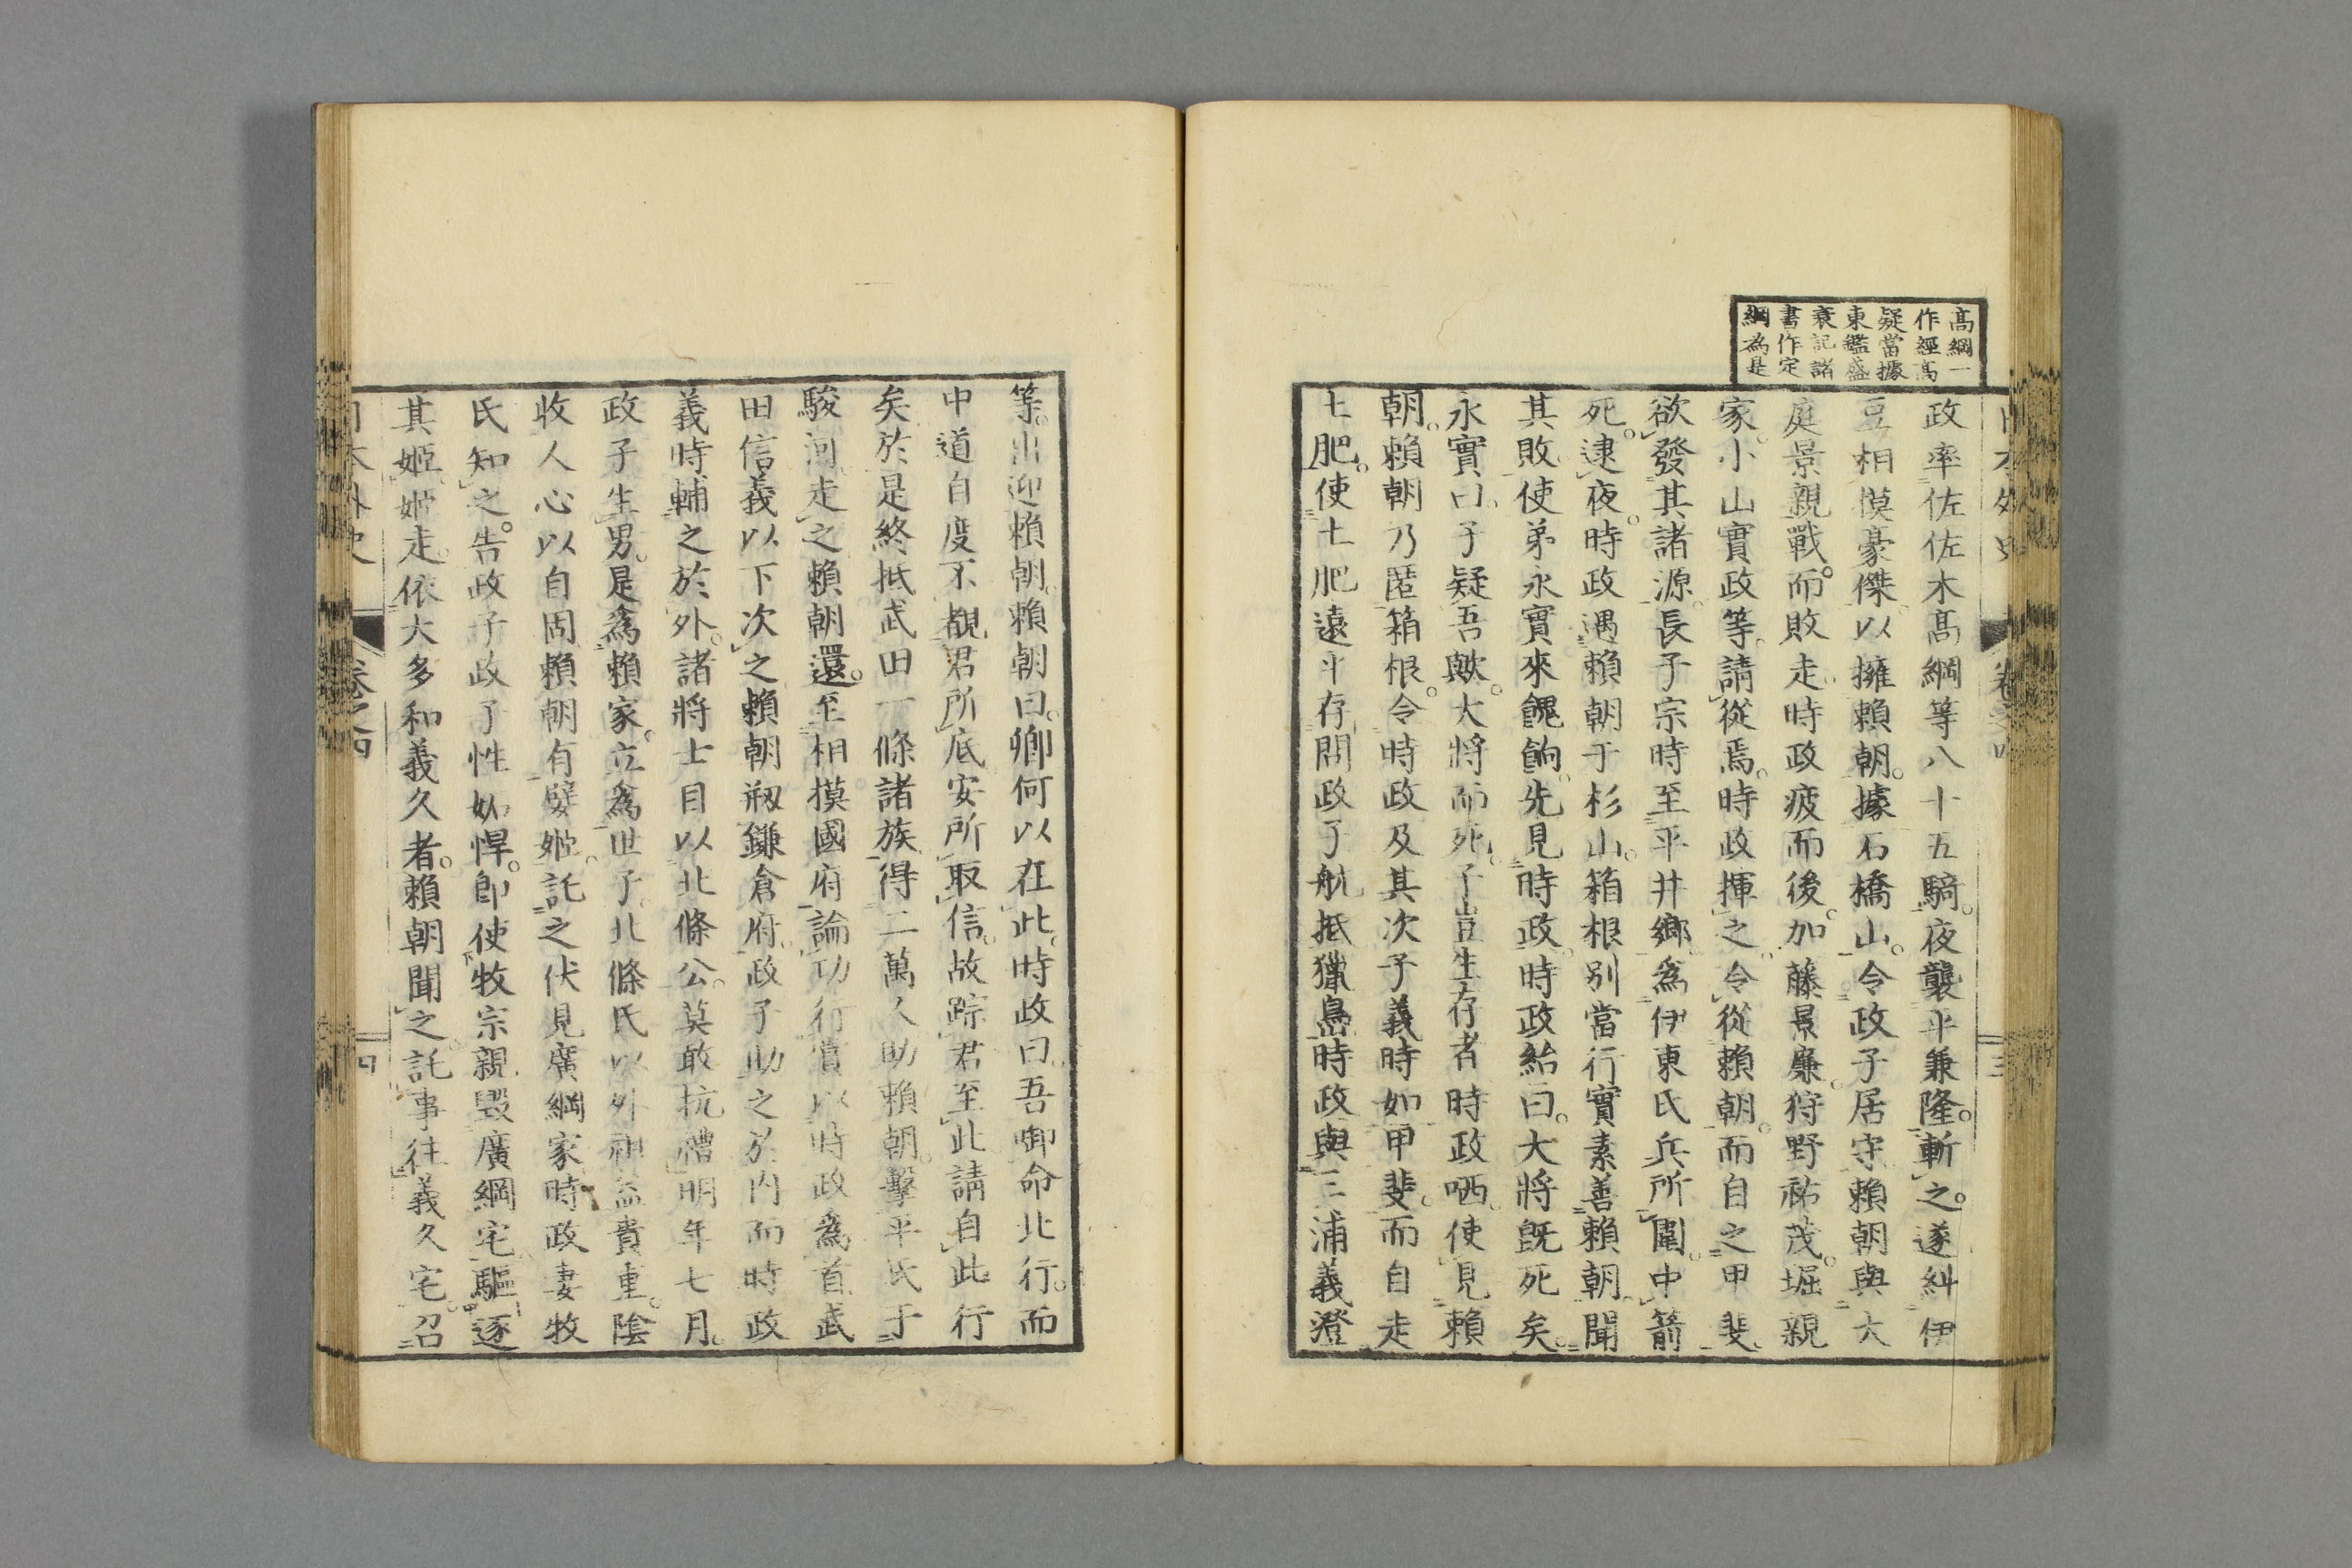 高綱一
作經高
疑當據
東鑑盛
衰記諸
書作定
綱為是
政率佐佐木高綱等八十五騎。夜襲平兼隆。斬之。遂糾伊
豆相摸豪傑。以擁賴朝。據石橋山。令政子居守。賴朝與大
庭景親戰。而敗走。時政疲而後。加藤景廉。狩野祐茂。堀親
家。小山實政等。請從焉。時政揮之。令從賴朝。而自之甲斐。
欲發其諸源。長子宗時至平井鄉。為伊東氏兵所圍。中箭
死。逮夜。時政遇賴朝于杉山。箱根別當行實素善賴朝。聞
其敗。使弟永實來餽餉。先見時政。時政紿曰。大將既死矣。
永實曰。子疑吾歟。大將而死。子豈生存者。時政哂。使見賴
朝。賴朝乃匿箱根。令時政及其次子義時如甲斐。而自走
土肥。使土肥遠平存問政子。航抵獵島。時政與三浦義澄
等。出迎賴朝。賴朝曰。卿何以在此。時政曰。吾御命北行。而
中道自度。不覩君所底。安所取信。故踪君至此。請自此行
矣。於是終抵武田一條諸族。得二萬人。助賴朝。擊平氏于
駿河。走之。賴朝還。至相摸國府。論功行賞。以時政為首。武
田信義以下次之。賴朝剏鎌倉府。政子助之於內。而時政
義時輔之於外。諸將士目以北條公。莫敢抗禮。明年七月。
政子生男。是為賴家。立為世子。北條氏以外祖益貴重。陰
收人心以自固。賴朝有嬖姬。託之伏見廣綱家。時政妻牧
氏知之。告政子。政子性妬悍。即使牧宗親毀廣綱宅。驅逐
其姬。姬走。依大多和義久者。賴朝聞之。託事往義久宅。召
日本外史
卷之四
四
日本外史
卷之四
三